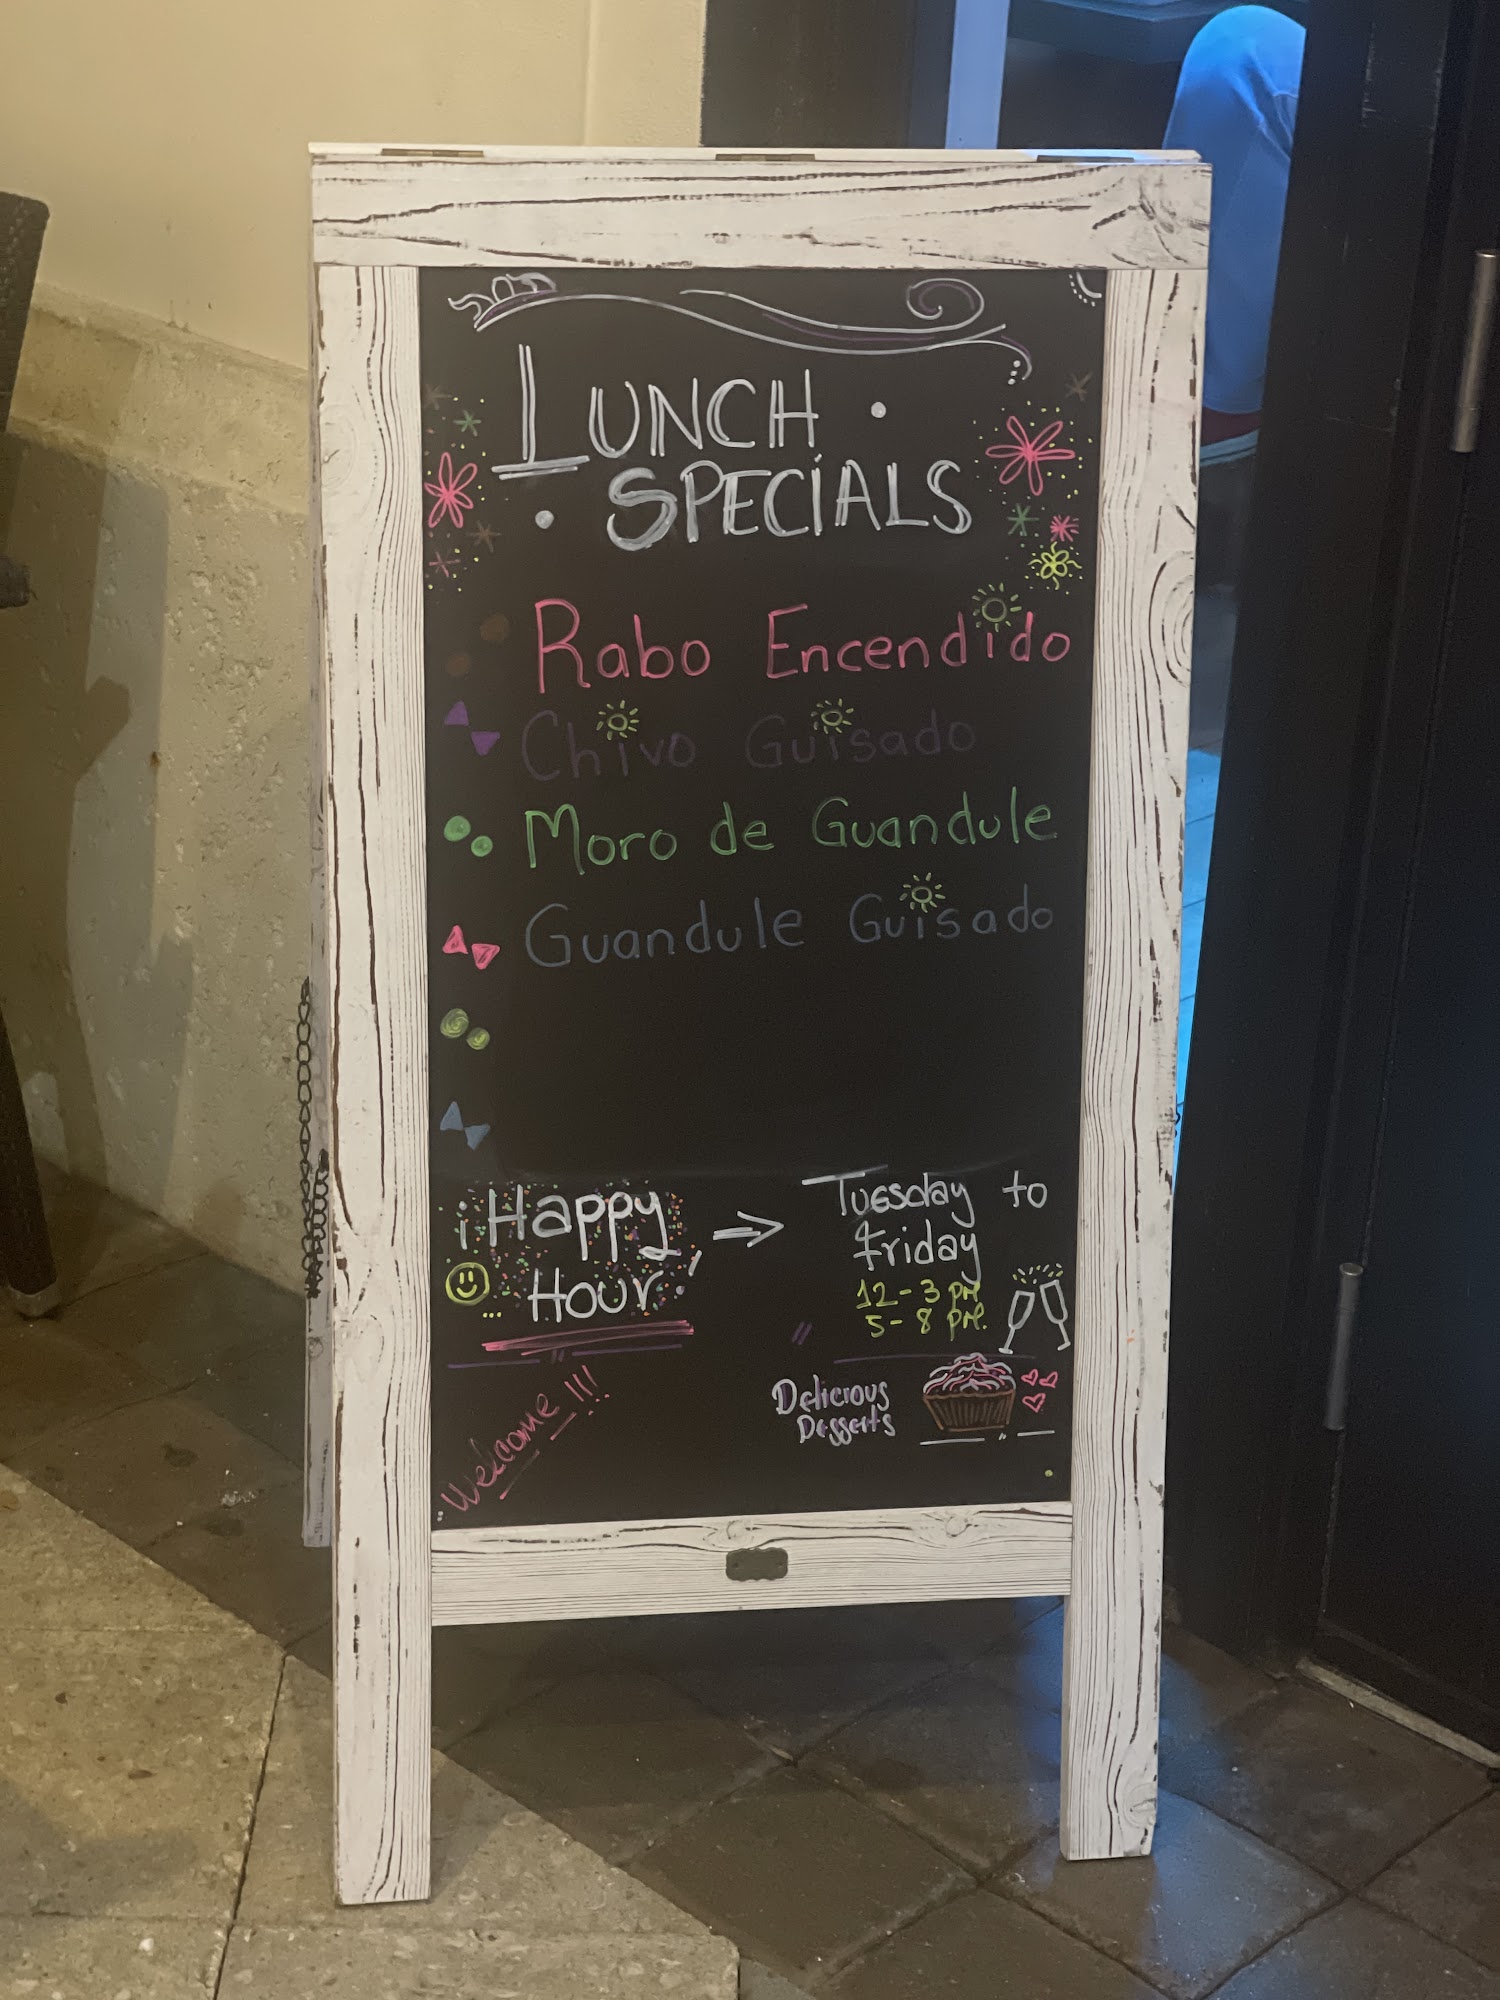 LUNCH
SPECIALS
Rabo Encendido
Chivo Guisado
Moro de Guandule
Guandule Guisado
¡Happy
Hour!
Tuesday to
Friday
12-3 pm
5-8 pm.
Welcome!!!
Delicious
Desserts